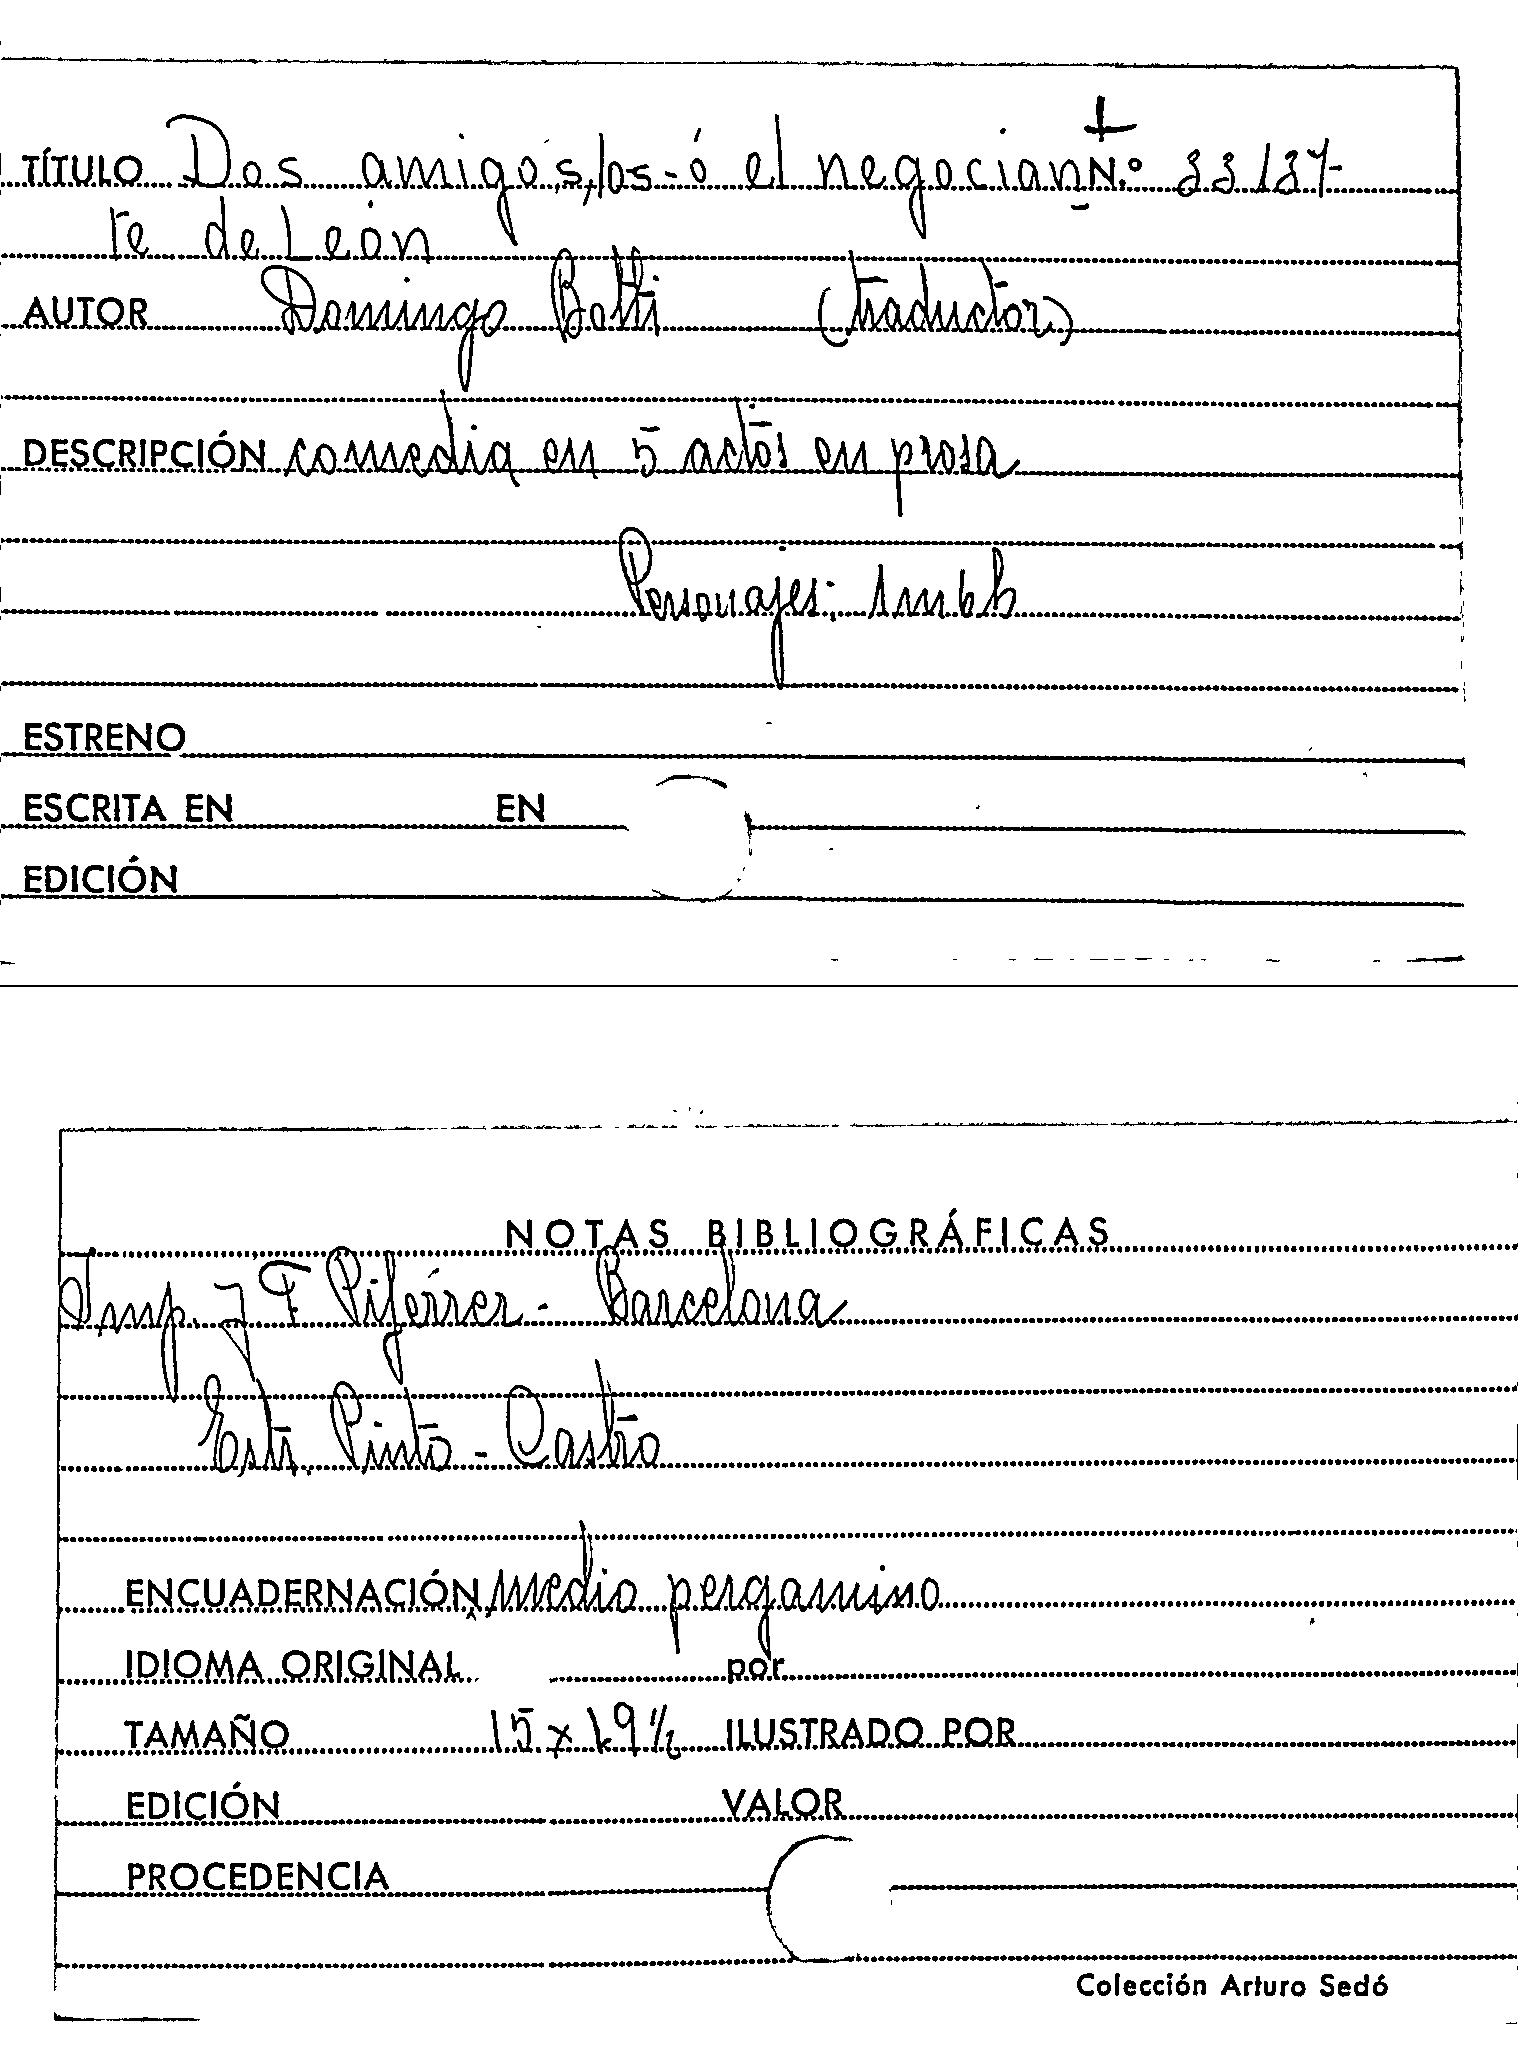 TÍTULO Dos amigos, los - ó el negocian- N.º 33137
te de León
AUTOR Domingo Botti (traductor)
DESCRIPCIÓN comedia en 5 actos en prosa
Personajes: 1m6h
ESTRENO
ESCRITA EN EN
EDICIÓN
NOTAS BIBLIOGRÁFICAS
Imp. J F Piferrer - Barcelona
Estr. Pinto - Castro
ENCUADERNACIÓN medio pergamino
IDIOMA ORIGINAL por
TAMAÑO 15 x 19½ ILUSTRADO POR
EDICIÓN VALOR
PROCEDENCIA
Colección Arturo Sedó